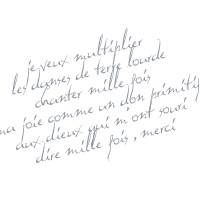 je veux multiplier
les danses de terre lourde
chanter mille fois
ma joie comme un don primitif
aux dieux qui m'ont souri
dire mille fois, merci